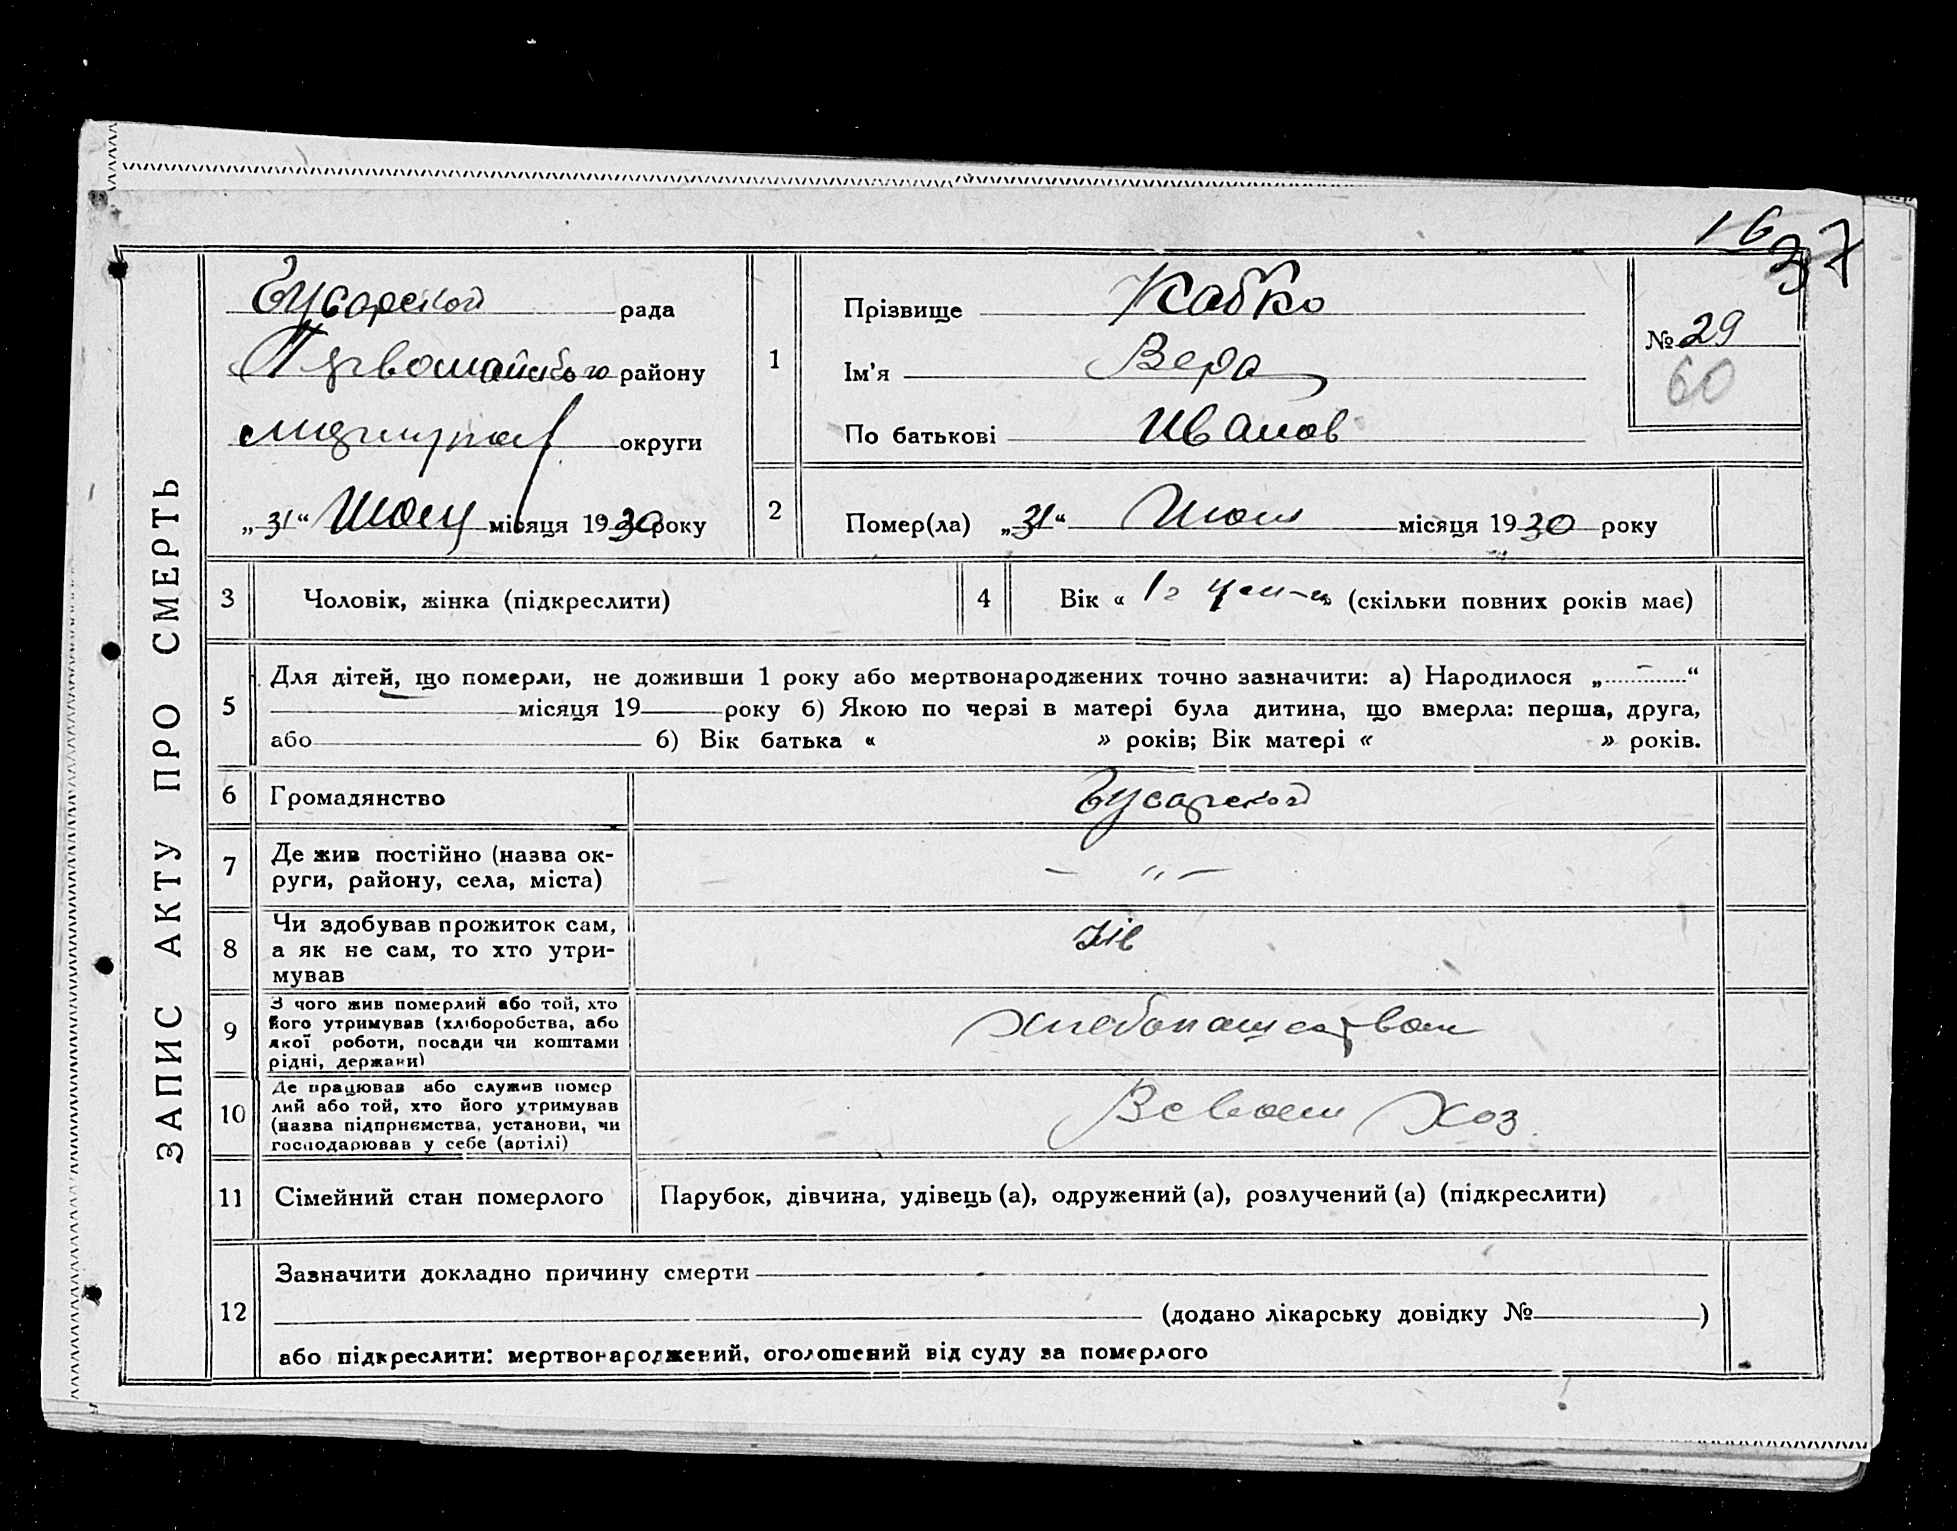 16
37
ЗАПИС АКТУ ПРО СМЕРТЬ
рада
району
округи
„31“ місяця 1930 року
1
Прізвище Кабко
Ім'я Вера
По батькові Иванов
№ 29
60
2
Помер(ла) „31“ місяця 1930 року
3
Чоловік, жінка (підкреслити)
4
Вік « 1 г » (скільки повних років має)
5
Для дітей, що померли, не доживши 1 року або мертвонароджених точно зазначити: а) Народилося „ “
місяця 19 року б) Якою по черзі в матері була дитина, що вмерла: перша, друга,
або б) Вік батька « » років; Вік матері « » років.
6
Громадянство
7
Де жив постійно (назва ок-
руги, району, села, міста)
— „ —
8
Чи здобував прожиток сам,
а як не сам, то хто утри-
мував
9
З чого жив померлий або той, хто
його утримував (хліборобства, або
якої роботи, посади чи коштами
рідні, держави)
хлебопашеством
10
Де працював або служив помер
лий або той, хто його утримував
(назва підприємства, установи, чи
господарював у себе (артілі)
В своем хоз.
11
Сімейний стан померлого
Парубок, дівчина, удівець (а), одружений (а), розлучений (а) (підкреслити)
12
Зазначити докладно причину смерти
(додано лікарську довідку № )
або підкреслити: мертвонароджений, оголошений від суду за померлого